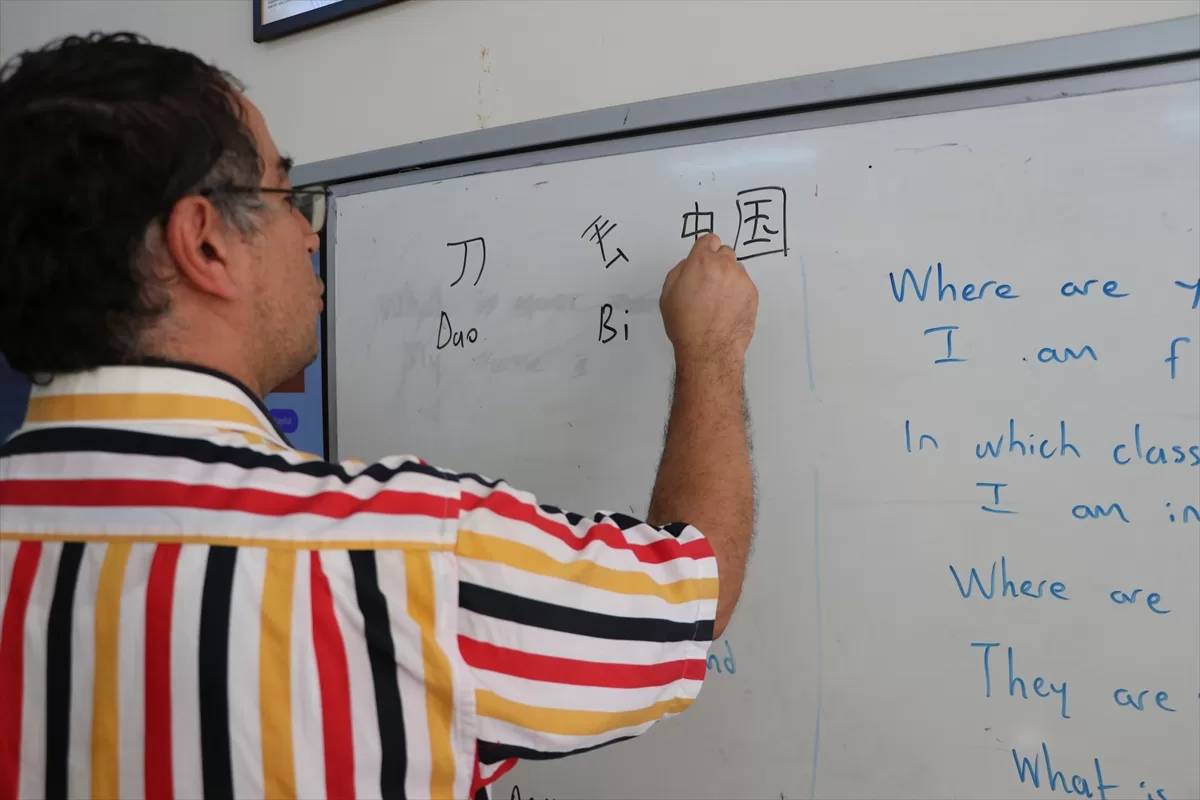 刀 毛 中国
Dao Bi
Where are y
I am f
In which class
I am in
Where are
They are
What is
nd